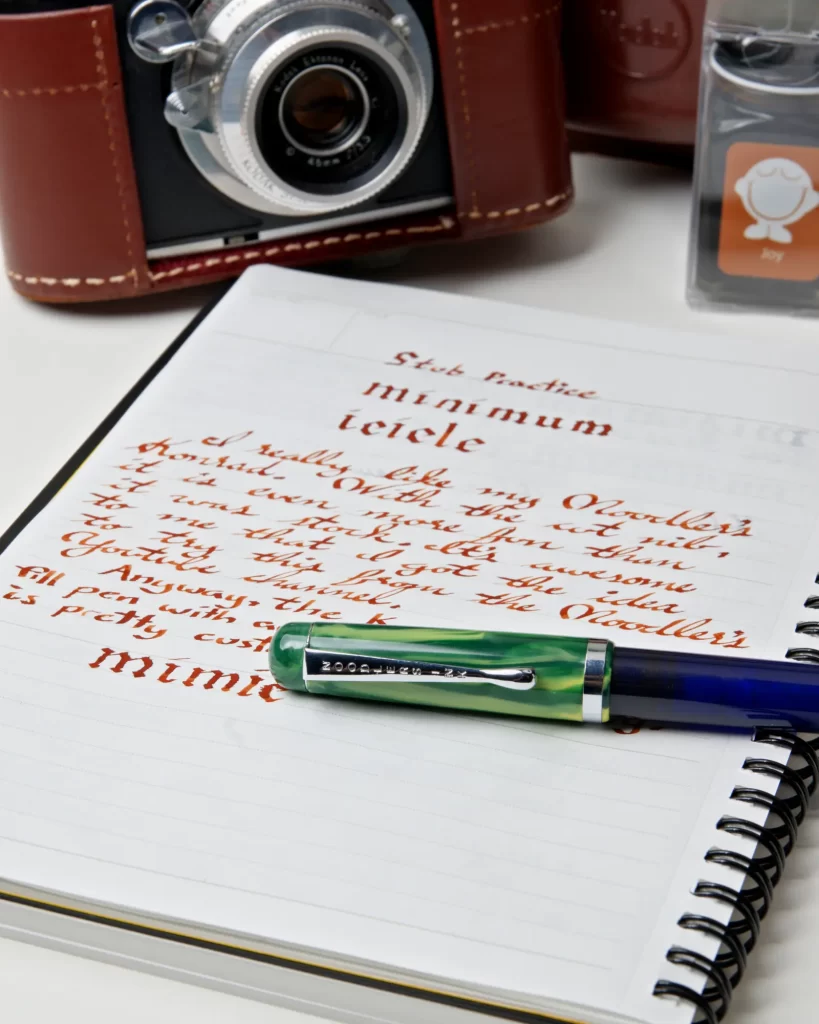 Kodak Ektanar Lens
45mm f/3.5
KODAK
Joy
Stub Practice
minimum
icicle
I really like my Noodler's
Konrad. With the cut nib,
it is even more fun than
it was stock. It's awesome
to me that I got the idea
to try this from the Noodler's
Youtube channel.
Anyway, the K
fill pen with a
is pretty cust
mimic
NOODLERS INK